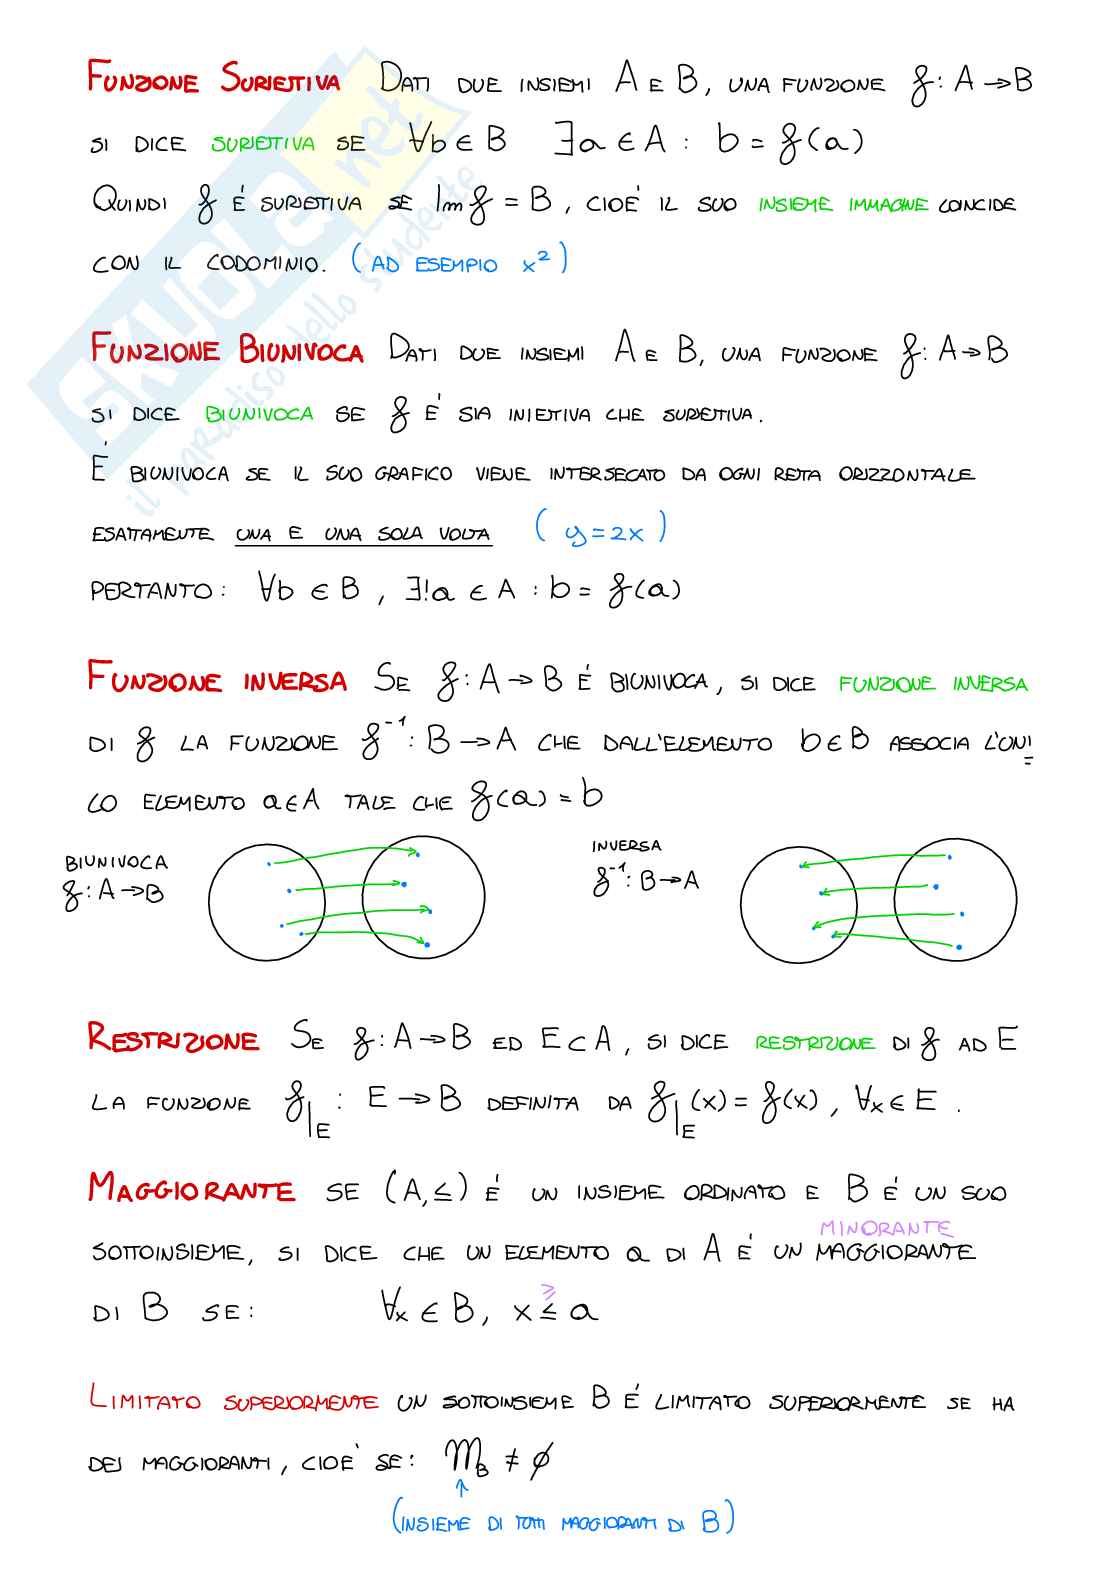 FUNZIONE SURIETTIVA DATI DUE INSIEMI A E B, UNA FUNZIONE f: A → B
SI DICE SURIETTIVA SE ∀b ∈ B ∃a ∈ A : b = f(a)
QUINDI f É SURIETTIVA SE Im f = B, CIOÉ IL SUO INSIEME IMMAGINE COINCIDE
CON IL CODOMINIO. (AD ESEMPIO x²)
FUNZIONE BIUNIVOCA DATI DUE INSIEMI A E B, UNA FUNZIONE f: A → B
SI DICE BIUNIVOCA SE f É SIA INIETTIVA CHE SURIETTIVA.
É BIUNIVOCA SE IL SUO GRAFICO VIENE INTERSECATO DA OGNI RETTA ORIZZONTALE
ESATTAMENTE UNA E UNA SOLA VOLTA (y=2x)
PERTANTO: ∀b ∈ B, ∃!a ∈ A : b = f(a)
FUNZIONE INVERSA SE f: A → B É BIUNIVOCA, SI DICE FUNZIONE INVERSA
DI f LA FUNZIONE f⁻¹: B → A CHE DALL'ELEMENTO b ∈ B ASSOCIA L'UNI
CO ELEMENTO a ∈ A TALE CHE f(a) = b
BIUNIVOCA
f: A → B
INVERSA
f⁻¹: B → A
RESTRIZIONE SE f: A → B ED E ⊂ A, SI DICE RESTRIZIONE DI f AD E
LA FUNZIONE f|E : E → B DEFINITA DA f|E (x) = f(x), ∀x ∈ E.
MAGGIORANTE SE (A, ≤) É UN INSIEME ORDINATO E B É UN SUO
MINORANTE
SOTTOINSIEME, SI DICE CHE UN ELEMENTO a DI A É UN MAGGIORANTE
≥
DI B SE: ∀x ∈ B, x ≤ a
LIMITATO SUPERIORMENTE UN SOTTOINSIEME B É LIMITATO SUPERIORMENTE SE HA
DEI MAGGIORANTI, CIOÉ SE: M_B ≠ ∅
↑
(INSIEME DI TUTTI MAGGIORANTI DI B)
SKUOLA.net
il paradiso dello studente